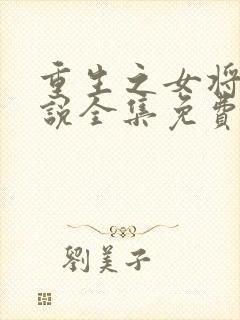 重生之女将
説全集免費
劉美子